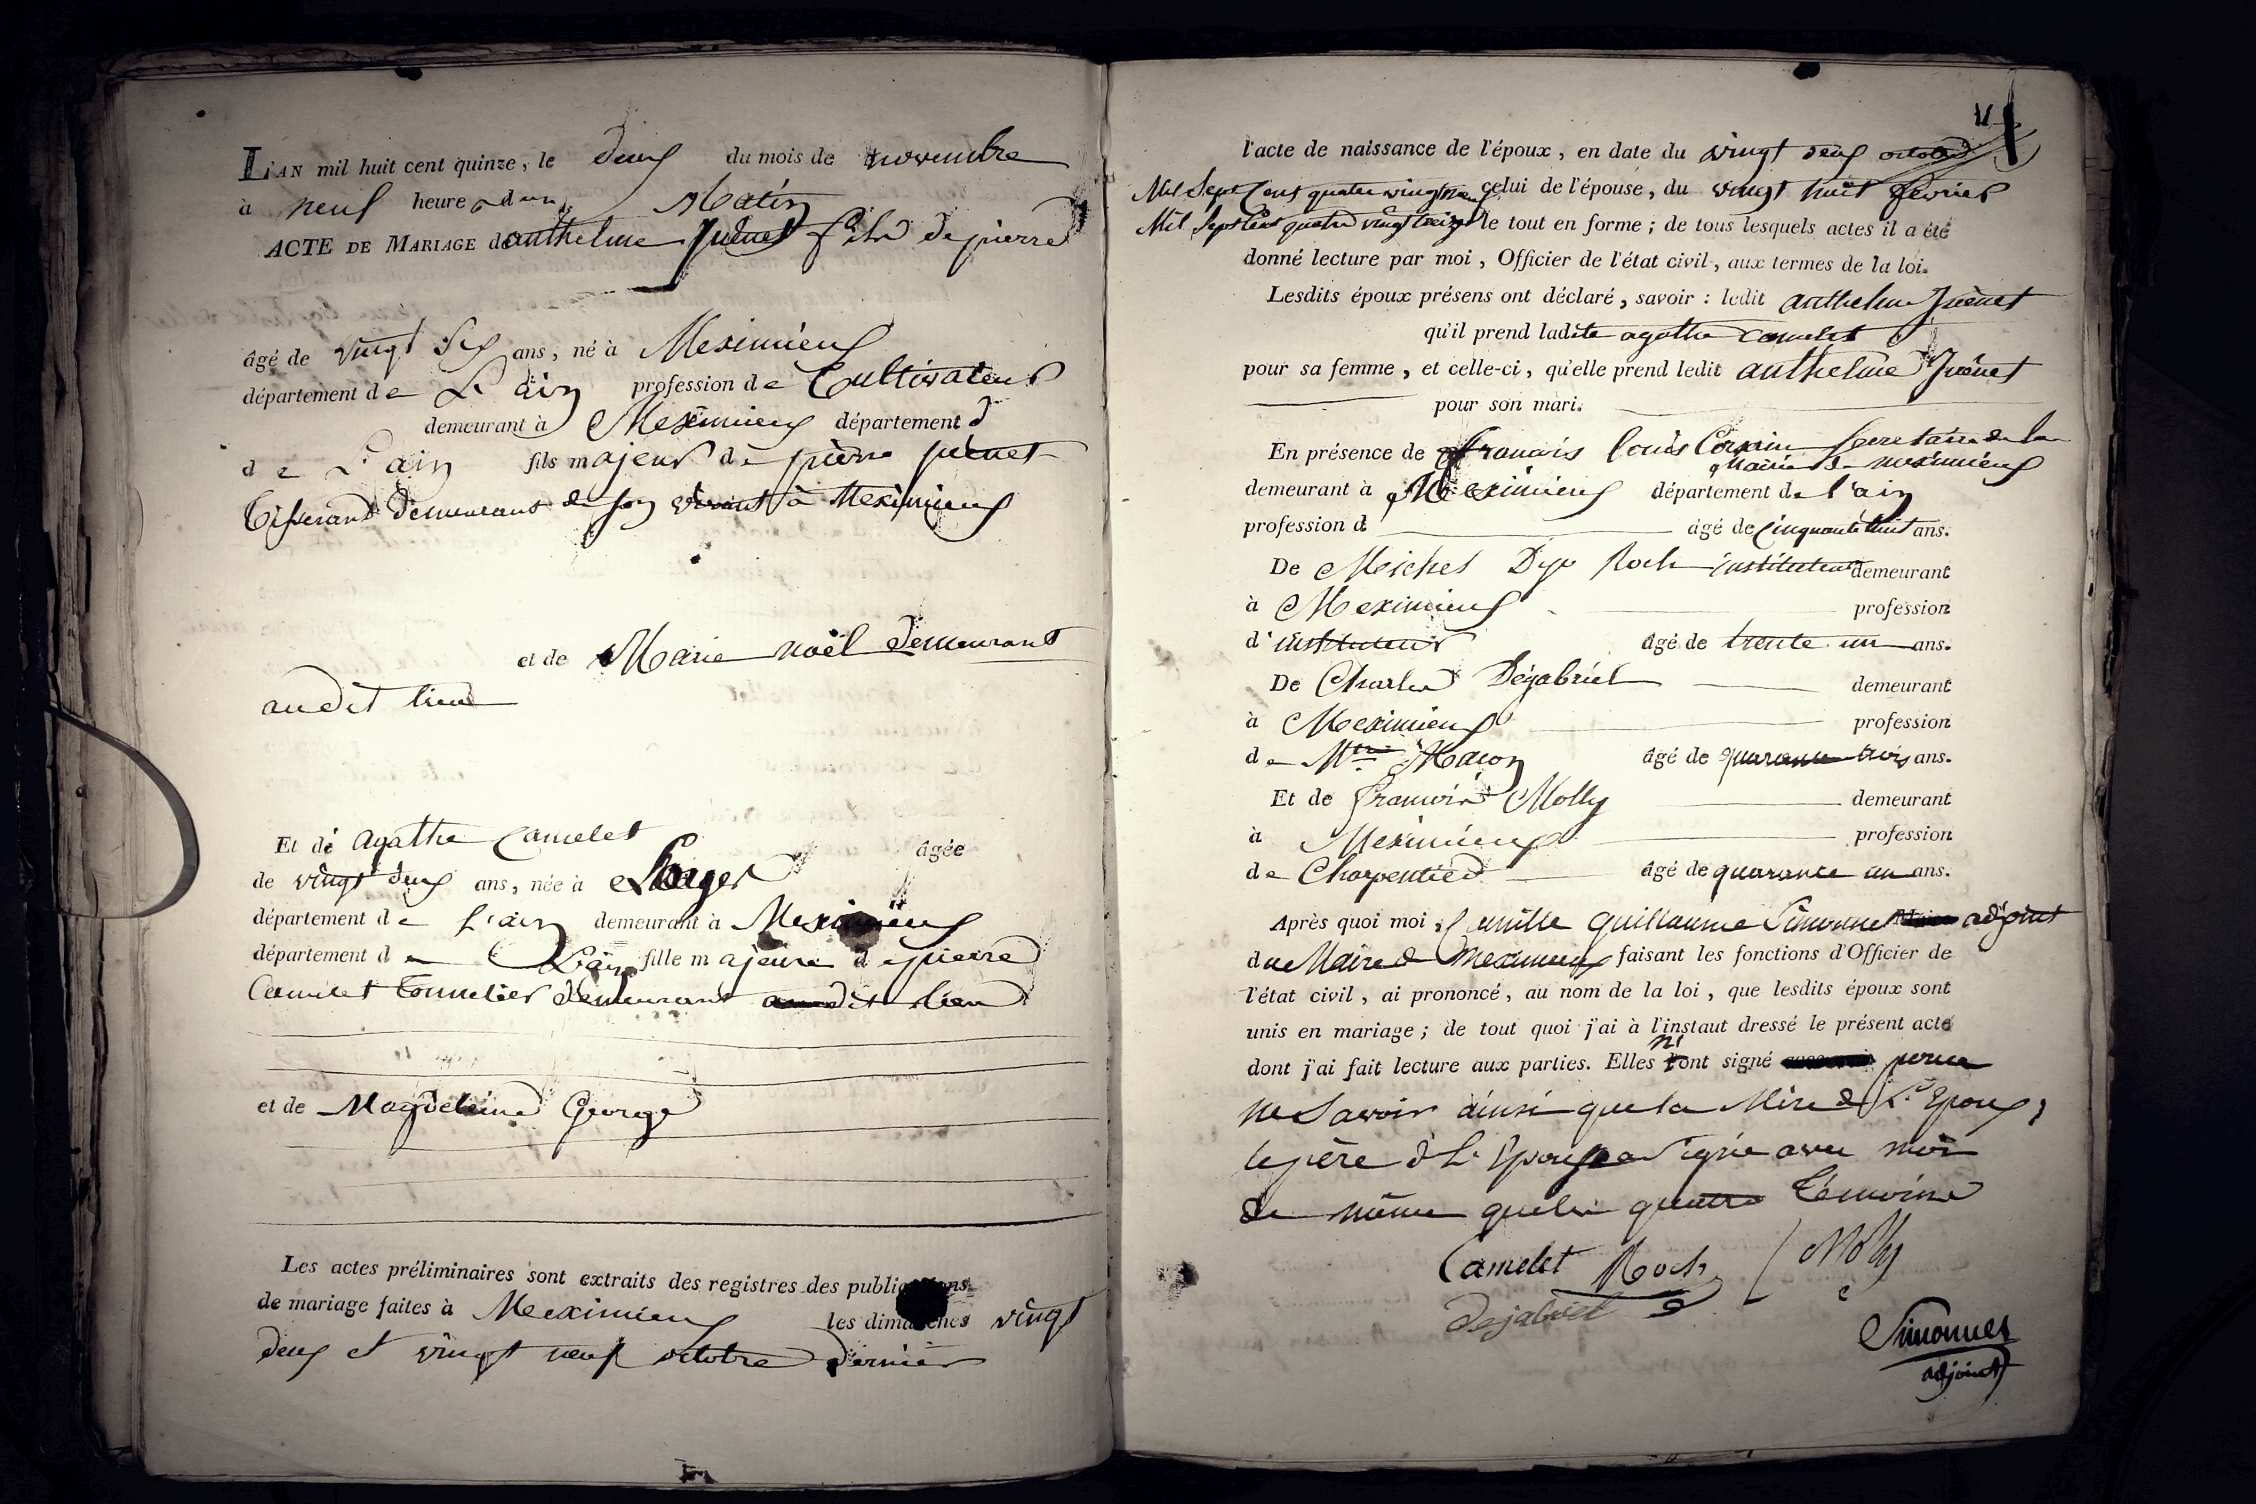 L'AN mil huit cent quinze, le deux du mois de novembre
à neuf heure du Matin
ACTE DE MARIAGE de anthelme fils de pierre
âgé de vingt Six ans, né à Meximieux
département de L'ain profession de Cultivateur
demeurant à Meximieux département d
de L'ain fils majeur de pierre
Tisserand demeurant de son vivant à Meximieux
et de Marie noël demeurant
audit lieu
Et de agathe Camelet âgée
de vingt deux ans, née à
département de L'ain demeurant à Meximieux
département de L'ain fille majeure de pierre
Camelet Tonnelier demeurant audit lieu
et de Magdeleine George
Les actes préliminaires sont extraits des registres des publications
de mariage faites à Meximieux les dimanches vingt
deux et vingt neuf octobre dernier
l'acte de naissance de l'époux, en date du vingt deux octobre
Mil Sept Cent quatre vingt neuf celui de l'épouse, du vingt huit février
Mil Sept Cent quatre vingt treize le tout en forme ; de tous lesquels actes il a été
donné lecture par moi, Officier de l'état civil, aux termes de la loi.
Lesdits époux présens ont déclaré, savoir : ledit anthelme
qu'il prend ladite agathe Camelet
pour sa femme, et celle-ci, qu'elle prend ledit anthelme
pour son mari.
En présence de francois Louis Secretaire de la
Mairie de meximieux
demeurant à Meximieux département de l'ain
profession d âgé de Cinquante huit ans.
De Michel Roch instituteur demeurant
à Meximieux profession
d'instituteur âgé de trente un ans.
De Charles Déjabriel demeurant
à Meximieux profession
de Mtre Macon âgé de quarante trois ans.
Et de francois Molly demeurant
à Meximieux profession
de Charpentier âgé de quarante un ans.
Après quoi moi, Camille guillaume Simonnet adjoint
du Maire de Meximieux faisant les fonctions d'Officier de
l'état civil, ai prononcé, au nom de la loi, que lesdits époux sont
unis en mariage ; de tout quoi j'ai à l'instant dressé le présent acte
dont j'ai fait lecture aux parties. Elles n'ont signé pour
ne Savoir ainsi que la Mère de L'Epoux,
le père de L'Epouse a signé avec moi
de même que les quatre Témoins
Camelet Roch Molly
dejabriel
Simonnet
adjoint